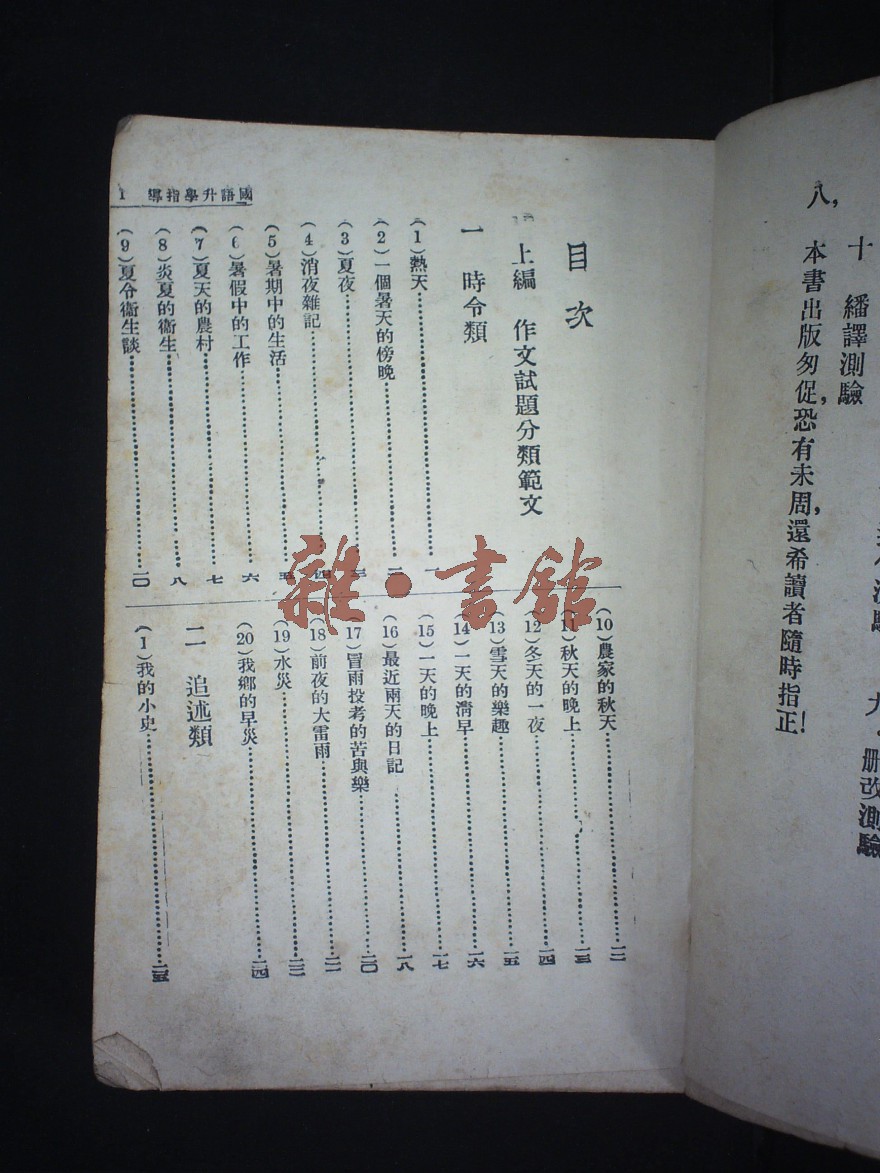 刪改測驗
十 繙譯測驗
八, 本書出版匆促,恐有未周,還希讀者隨時指正!
國語升學指導 1
目次
上編 作文試題分類範文
一 時令類
(1)熱天…………一
(2)一個暑天的傍晚…………二
(3)夏夜…………三
(4)消夜雜記…………四
(5)暑期中的生活…………五
(6)暑假中的工作…………六
(7)夏天的農村…………七
(8)炎夏的衞生…………八
(9)夏令衞生談…………一〇
(10)農家的秋天…………一二
(11)秋天的晚上…………一三
(12)冬天的一夜…………一四
(13)雪天的樂趣…………一五
(14)一天的清早…………一六
(15)一天的晚上…………一七
(16)最近兩天的日記…………一八
(17)冒雨投考的苦與樂…………二〇
(18)前夜的大雷雨…………
(19)水災…………
(20)我鄉的旱災…………二四
二 追述類
(1)我的小史…………二五
雜·書館